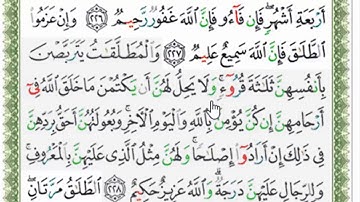 أَرْبَعَةِ أَشْهُرٍ ۖ فَإِن فَآءُو فَإِنَّ ٱللَّهَ غَفُورٌ رَّحِيمٌ ٢٢٦ وَإِنْ عَزَمُوا۟
ٱلطَّلَـٰقَ فَإِنَّ ٱللَّهَ سَمِيعٌ عَلِيمٌ ٢٢٧ وَٱلْمُطَلَّقَـٰتُ يَتَرَبَّصْنَ
بِأَنفُسِهِنَّ ثَلَـٰثَةَ قُرُوٓءٍ ۚ وَلَا يَحِلُّ لَهُنَّ أَن يَكْتُمْنَ مَا خَلَقَ ٱللَّهُ فِىٓ
أَرْحَامِهِنَّ إِن كُنَّ يُؤْمِنَّ بِٱللَّهِ وَٱلْيَوْمِ ٱلْـَٔاخِرِ ۚ وَبُعُولَتُهُنَّ أَحَقُّ بِرَدِّهِنَّ
فِى ذَٰلِكَ إِنْ أَرَادُوٓا۟ إِصْلَـٰحًا ۚ وَلَهُنَّ مِثْلُ ٱلَّذِى عَلَيْهِنَّ بِٱلْمَعْرُوفِ ۚ
وَلِلرِّجَالِ عَلَيْهِنَّ دَرَجَةٌ ۗ وَٱللَّهُ عَزِيزٌ حَكِيمٌ ٢٢٨ ٱلطَّلَـٰقُ مَرَّتَانِ ۖ